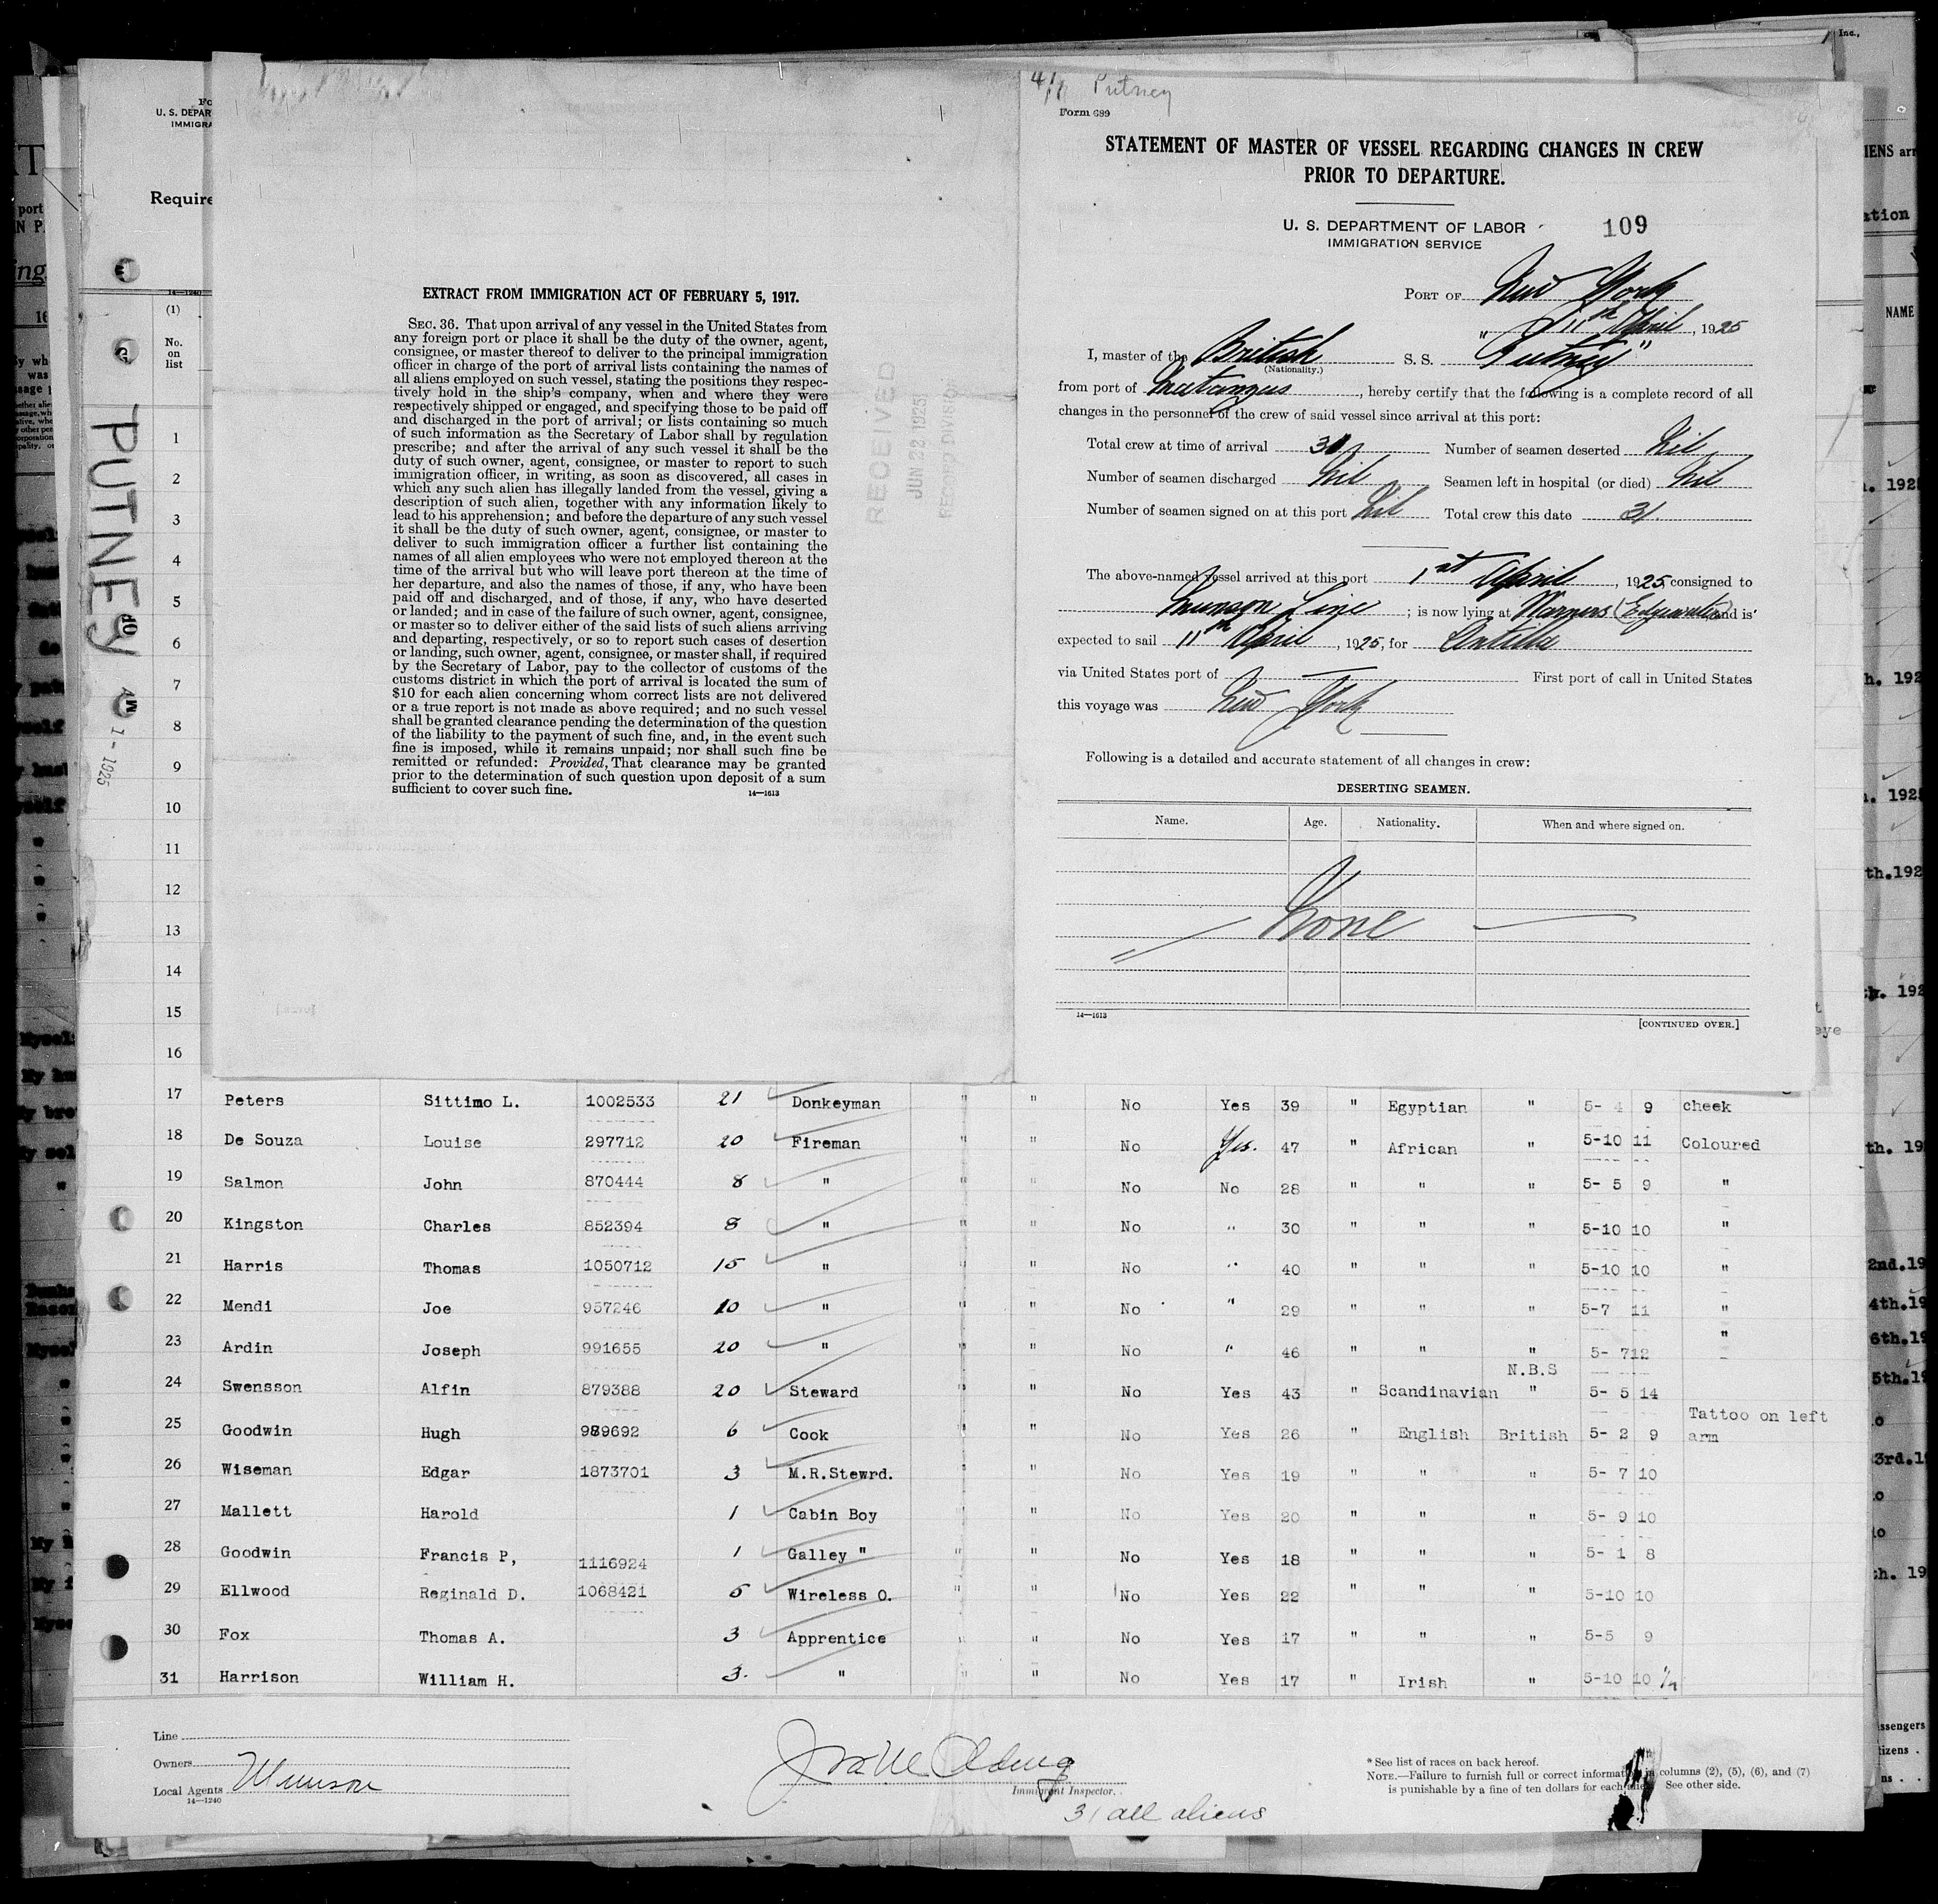 Fo
U. S. DEPAR
IMMIGRA
Require
14—1240
(1)
No.
on
list
PUTNEY
1 - 1925
1
2
3
4
5
6
7
8
9
10
11
12
13
14
15
16
EXTRACT FROM IMMIGRATION ACT OF FEBRUARY 5, 1917.
SEC. 36. That upon arrival of any vessel in the United States from
any foreign port or place it shall be the duty of the owner, agent,
consignee, or master thereof to deliver to the principal immigration
officer in charge of the port of arrival lists containing the names of
all aliens employed on such vessel, stating the positions they respec-
tively hold in the ship's company, when and where they were
respectively shipped or engaged, and specifying those to be paid off
and discharged in the port of arrival; or lists containing so much
of such information as the Secretary of Labor shall by regulation
prescribe; and after the arrival of any such vessel it shall be the
duty of such owner, agent, consignee, or master to report to such
immigration officer, in writing, as soon as discovered, all cases in
which any such alien has illegally landed from the vessel, giving a
description of such alien, together with any information likely to
lead to his apprehension; and before the departure of any such vessel
it shall be the duty of such owner, agent, consignee, or master to
deliver to such immigration officer a further list containing the
names of all alien employees who were not employed thereon at the
time of the arrival but who will leave port thereon at the time of
her departure, and also the names of those, if any, who have been
paid off and discharged, and of those, if any, who have deserted
or landed; and in case of the failure of such owner, agent, consignee,
or master so to deliver either of the said lists of such aliens arriving
and departing, respectively, or so to report such cases of desertion
or landing, such owner, agent, consignee, or master shall, if required
by the Secretary of Labor, pay to the collector of customs of the
customs district in which the port of arrival is located the sum of
$10 for each alien concerning whom correct lists are not delivered
or a true report is not made as above required; and no such vessel
shall be granted clearance pending the determination of the question
of the liability to the payment of such fine, and, in the event such
fine is imposed, while it remains unpaid; nor shall such fine be
remitted or refunded: Provided, That clearance may be granted
prior to the determination of such question upon deposit of a sum
sufficient to cover such fine.
14—1613
RECEIVED
JUN 22 1925
RECORD DIVISION
Putney
Form 689
STATEMENT OF MASTER OF VESSEL REGARDING CHANGES IN CREW
PRIOR TO DEPARTURE.
U. S. DEPARTMENT OF LABOR
109
IMMIGRATION SERVICE
PORT OF New York
11th April, 1925
I, master of the British S. S. "Putney"
(Nationality.)
from port of Matanzas, hereby certify that the following is a complete record of all
changes in the personnel of the crew of said vessel since arrival at this port:
Total crew at time of arrival 31 Number of seamen deserted Nil
Number of seamen discharged Nil Seamen left in hospital (or died) Nil
Number of seamen signed on at this port Nil Total crew this date 31.
The above-named vessel arrived at this port 1st April, 1925 consigned to
Munson Line; is now lying at Warners (Edgewater) and is
expected to sail 11th April, 1925, for Antilla
via United States port of — First port of call in United States
this voyage was New York
Following is a detailed and accurate statement of all changes in crew:
DESERTING SEAMEN.
Name. Age. Nationality. When and where signed on.
None
14—1613
[CONTINUED OVER.]
17 Peters Sittimo L. 1002533 21 Donkeyman " " No Yes 39 " Egyptian " 5- 4 9 cheek
18 De Souza Louise 297712 20 Fireman " " No Yes. 47 " African " 5-10 11 Coloured
19 Salmon John 870444 8 " " " No No 28 " " " 5- 5 9 "
20 Kingston Charles 852394 8 " " " No " 30 " " " 5-10 10 "
21 Harris Thomas 1050712 15 " " " No " 40 " " " 5-10 10 "
22 Mendi Joe 957246 10 " " " No " 29 " " " 5-7 11 "
23 Ardin Joseph 991655 20 " " " No " 46 " " " 5- 7 12 "
N.B.S
24 Swensson Alfin 879388 20 Steward " " No Yes 43 " Scandinavian " 5- 5 14
25 Goodwin Hugh 989692 6 Cook " " No Yes 26 " English British 5- 2 9 Tattoo on left arm
26 Wiseman Edgar 1873701 3 M.R.Stewrd. " " No Yes 19 " " " 5- 7 10
27 Mallett Harold 1 Cabin Boy " " No Yes 20 " " " 5- 9 10
28 Goodwin Francis P, 1116924 1 Galley " " " No Yes 18 " " " 5- 1 8
29 Ellwood Reginald D. 1068421 5 Wireless O. " " No Yes 22 " " " 5-10 10
30 Fox Thomas A. 3 Apprentice " " No Yes 17 " " " 5-5 9
31 Harrison William H. 3. " " " No Yes 17 " Irish " 5-10 10 1/2
Line
Owners
Local Agents Munson
14—1240
Immigrant Inspector.
31 all aliens
* See list of races on back hereof.
NOTE.—Failure to furnish full or correct information in columns (2), (5), (6), and (7)
is punishable by a fine of ten dollars for each alien. See other side.